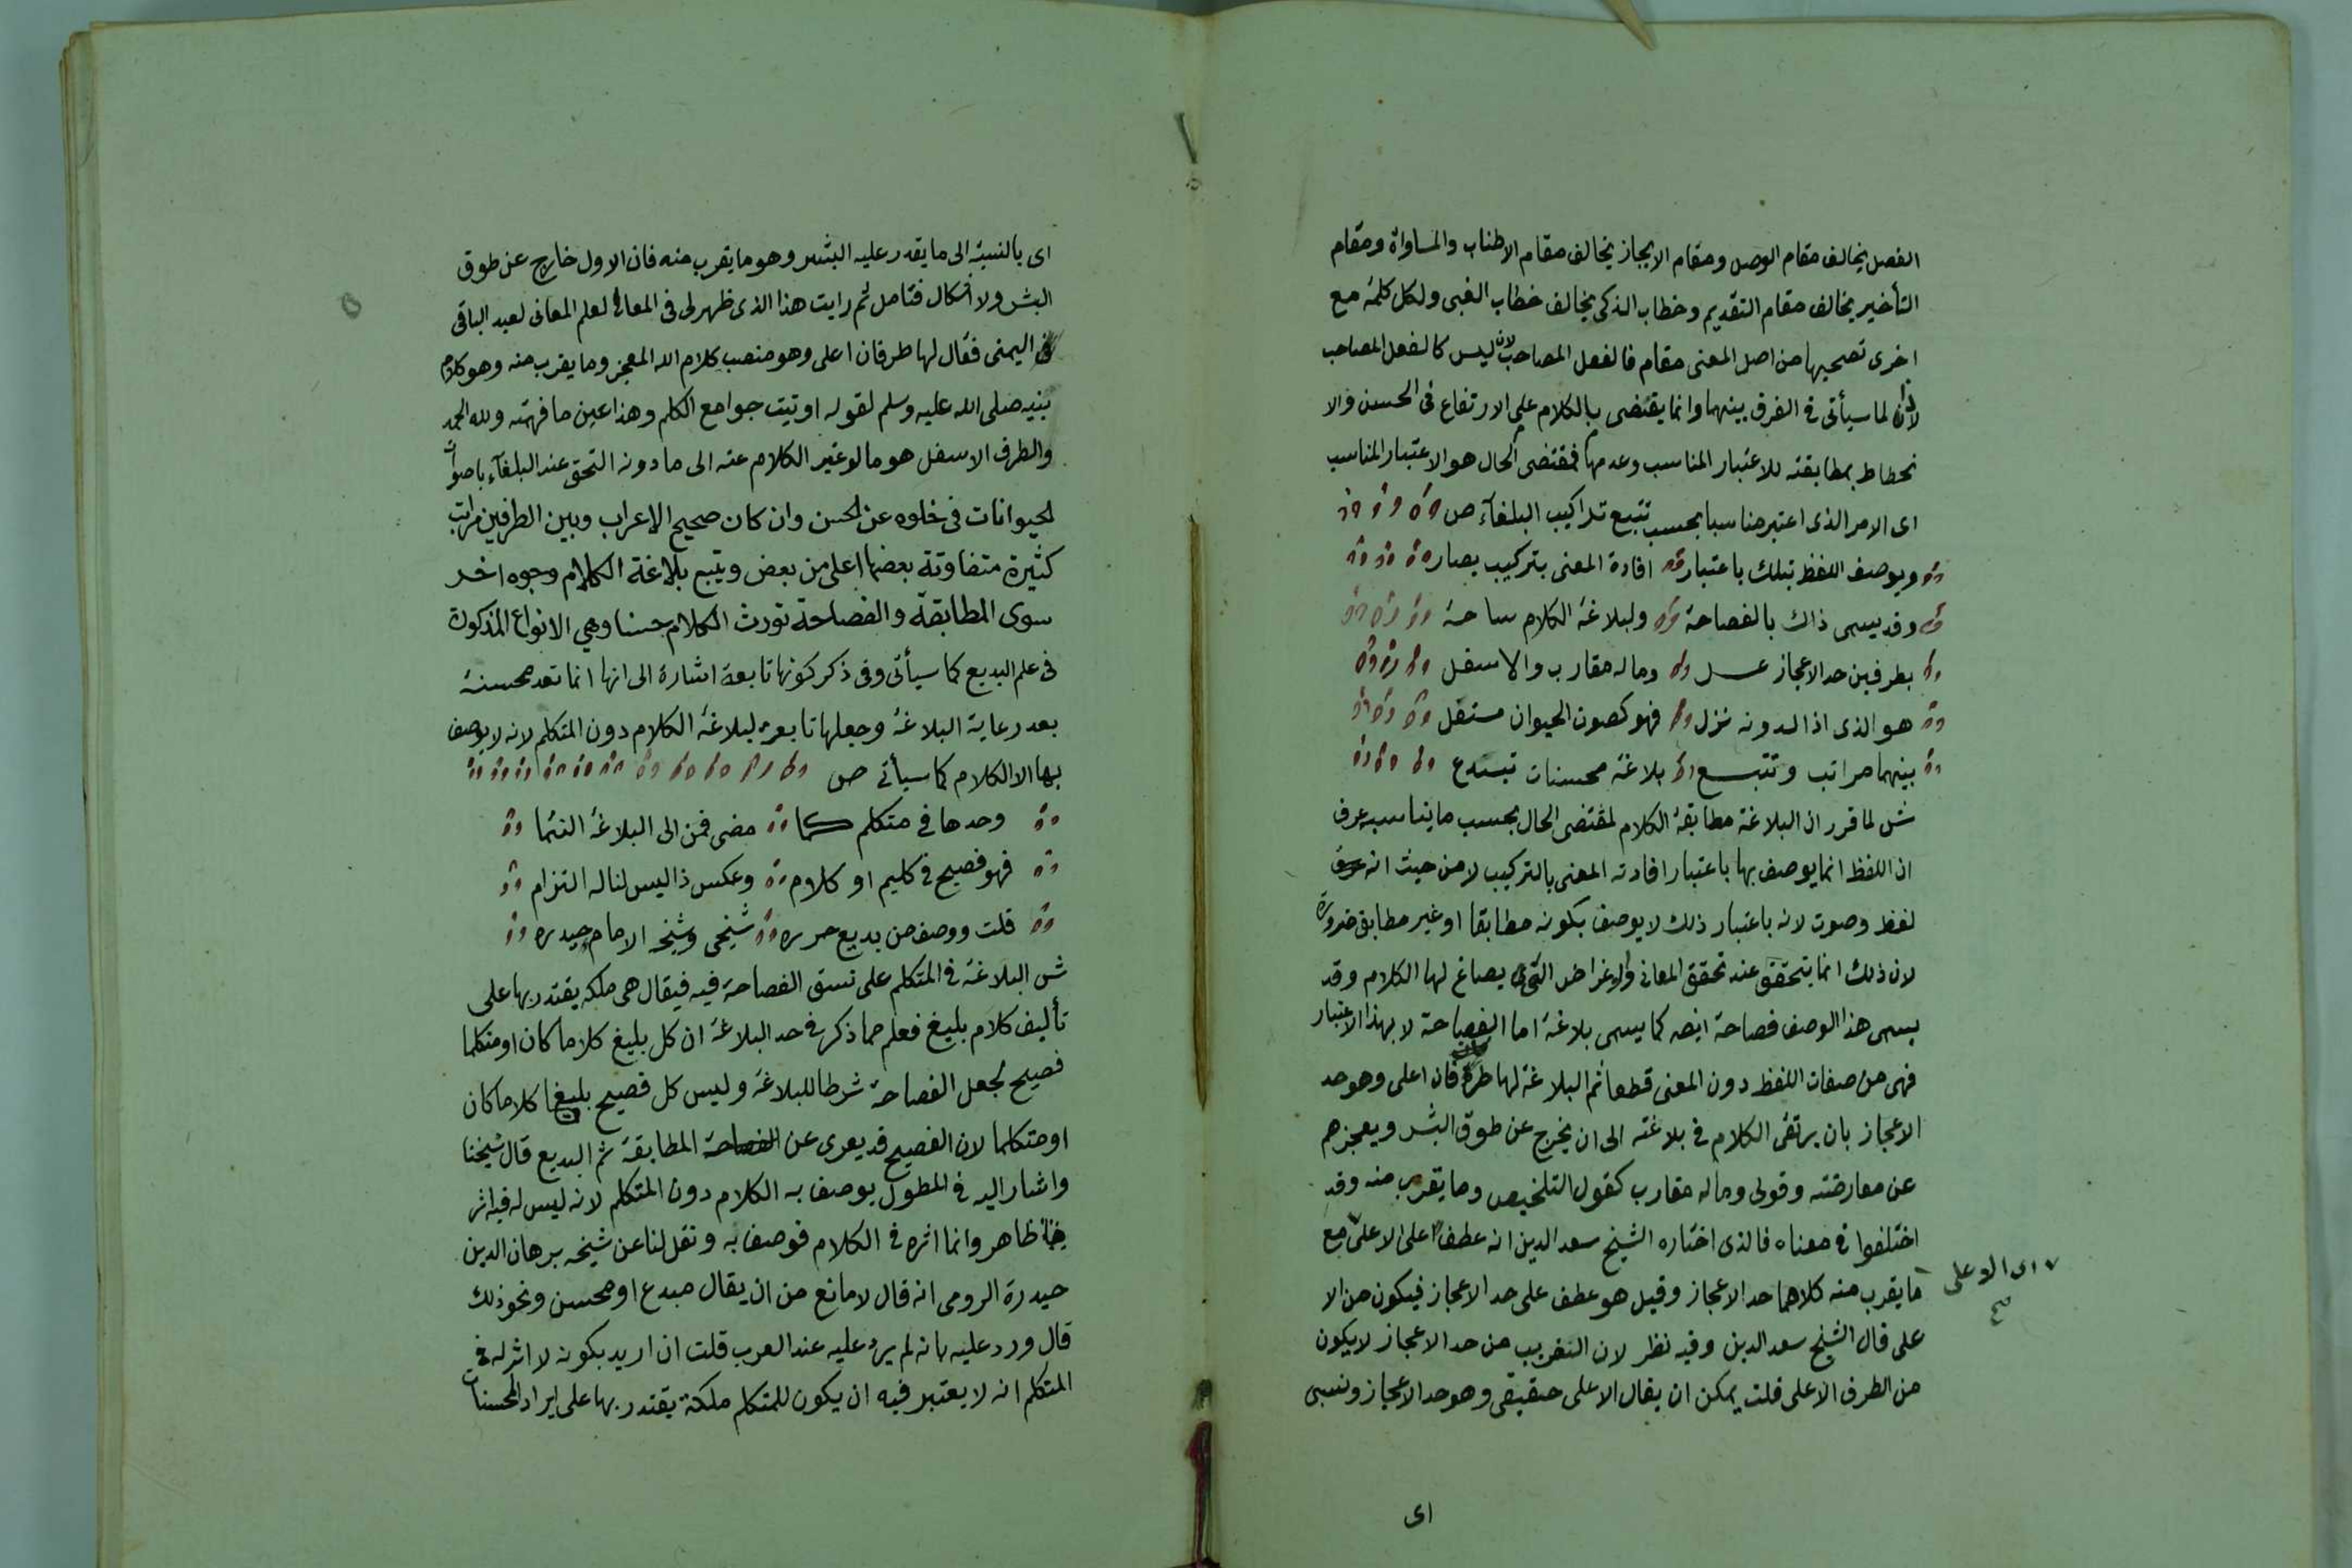 الفصل يخالف مقام الوصل ومقام الايجاز يخالف مقام الاطناب والمساواة ومقام
التأخير يخالف مقام التقديم وخطاب الذكى يخالف خطاب الغبى ولكل كلمة مع
اخرى تصحبها من اصل المعنى مقام فالفعل المصاحب لان ليس كالفعل المصاحب
لاذا لما سيأتى فى الفرق بينهما وانما يقتضى بالكلام على الارتفاع فى الحسن والا
نحطاط بمطابقته للاعتبار المناسب وعدمها فمقتضى الحال هو الاعتبار المناسب
اى الامر الذى اعتبر مناسبا بحسب تتبع تراكيب البلغآء ص
ويوصف اللفظ بتلك باعتبار افادة المعنى بتركيب يصار
وقد يسمى ذاك بالفصاحة ولبلاغة الكلام ساحة
بطرفين حد الاعجاز عــل وما له مقارب والاسفل
هو الذى اذا لدونه نزل فهو كصوت الحيوان مستفل
بينهما مراتب وتتبــع بلاغة محسنات تبتدع
ش لما قرر ان البلاغة مطابقة الكلام لمقتضى الحال بحسب ما يناسبه عرف
ان اللفظ انما يوصف بها باعتبار افادته المعنى بالتركيب لا من حيث انه
لفظ وصوت لانه باعتبار ذلك لا يوصف بكونه مطابقا او غير مطابق ضرورة
لان ذلك انما يتحقق عند تحقق المعانى والاغراض التى يصاغ لها الكلام وقد
يسمى هذا الوصف فصاحة ايضه كما يسمى بلاغة اما الفصاحة لا بهذا الاعتبار
فهى من صفات اللفظ دون المعنى قطعا ثم البلاغة لها طرفان اعلى وهو حد
الاعجاز بان يرتقى الكلام فى بلاغته الى ان يخرج عن طوق البشر ويعجزهم
عن معارضته وقولى وما له مقارب كقول التلخيص وما يقرب منه وقد
اختلفوا فى معناه فالذى اختاره الشيخ سعد الدين انه عطف اعلى الاعلى مع
ما يقرب منه كلاهما حد الاعجاز وقيل هو عطف على حد الاعجاز فيكون من الا
على قال الشيخ سعد الدين وفيه نظر لان القريب من حد الاعجاز لا يكون
من الطرف الاعلى قلت يمكن ان يقال الاعلى حقيقى وهو حد الاعجاز ونسبى
اى الاعلى
اى
اى بالنسبة الى ما يقدر عليه البشر وهو ما يقرب منه فان الاول خارج عن طوق
البشر ولا اشكال فتامل ثم رايت هذا الذى ظهر لى فى المعانى لعلم المعانى لعبد الباقى
اليمنى فقال لها طرفان اعلى وهو منصب كلام الله المعجز وما يقرب منه وهو كلام
نبيه صلى الله عليه وسلم لقوله اوتيت جوامع الكلم وهذا عين ما فهمته ولله الحمد
والطرف الاسفل هو ما لو غير الكلام عنه الى ما دونه التحق عند البلغآء باصوات
لحيوانات فى خلوه عن الحسن وان كان صحيح الاعراب وبين الطرفين مراتب
كثيرة متفاوتة بعضها اعلى من بعض ويتبع بلاغة الكلام وجوه اخر
سوى المطابقة والفصاحة تورث الكلام حسنا وهى الانواع المذكورة
فى علم البديع كما سيأتى وفى ذكر كونها تابعة اشارة الى انها انما تعد محسنة
بعد رعاية البلاغة وجعلها تابعة لبلاغة الكلام دون المتكلم لانه لا يوصف
بها الا الكلام كما سيأتى ص
وحدها فى متكلم كـما مضى فمن الى البلاغة انتما
فهو فصيح فى كليم او كلام وعكس ذا ليس لناله التزام
قلت ووصف من بديع حرره شيخى وشيخه الامام حيدره
ش البلاغة فى المتكلم على نسق الفصاحة فيه فيقال هى ملكه يقتدر بها على
تأليف كلام بليغ فعلم مما ذكر فى حد البلاغة ان كل بليغ كلاما كان او متكلما
فصيح لجعل الفصاحة شرطا للبلاغة وليس كل فصيح بليغا كلاما كان
او متكلما لان الفصيح قد يعرى عن الفصاحة المطابقة ثم البديع قال شيخنا
واشار اليه فى المطول يوصف به الكلام دون المتكلم لانه ليس له فيه اثر
ظاهر وانما اثره فى الكلام فوصف به ونقل لنا عن شيخه برهان الدين
حيدرة الرومى انه قال لا مانع من ان يقال مبدع او محسن ونحو ذلك
قال ورد عليه بانه لم يرد عليه عند العرب قلت ان اريد بكونه لا اثر له فى
المتكلم انه لا يعتبر فيه ان يكون للمتكلم ملكة يقتدر بها على ايراد المحسنات